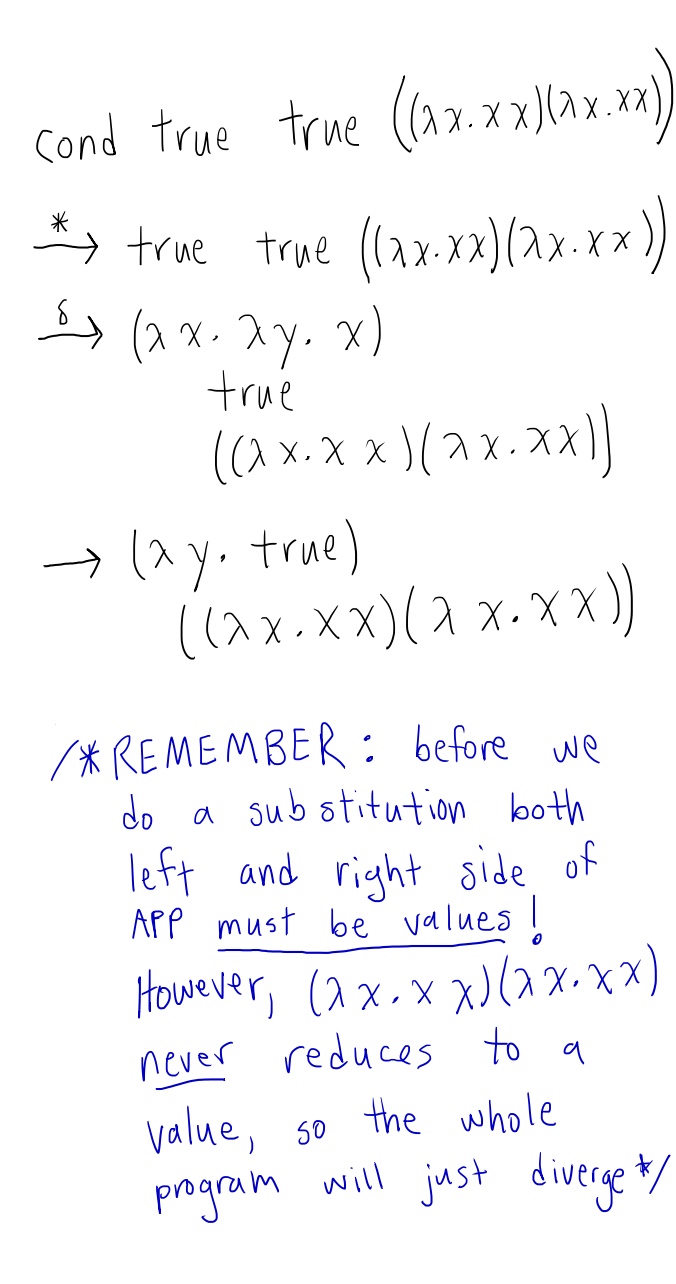 cond true true ((λx.xx)(λx.xx))
*→ true true ((λx.xx)(λx.xx))
δ→ (λx. λy. x)
true
((λx.xx)(λx.xx))
→ (λy. true)
((λx.xx)(λx.xx))
/*REMEMBER: before we
do a substitution both
left and right side of
APP must be values!
However, (λx.xx)(λx.xx)
never reduces to a
value, so the whole
program will just diverge*/